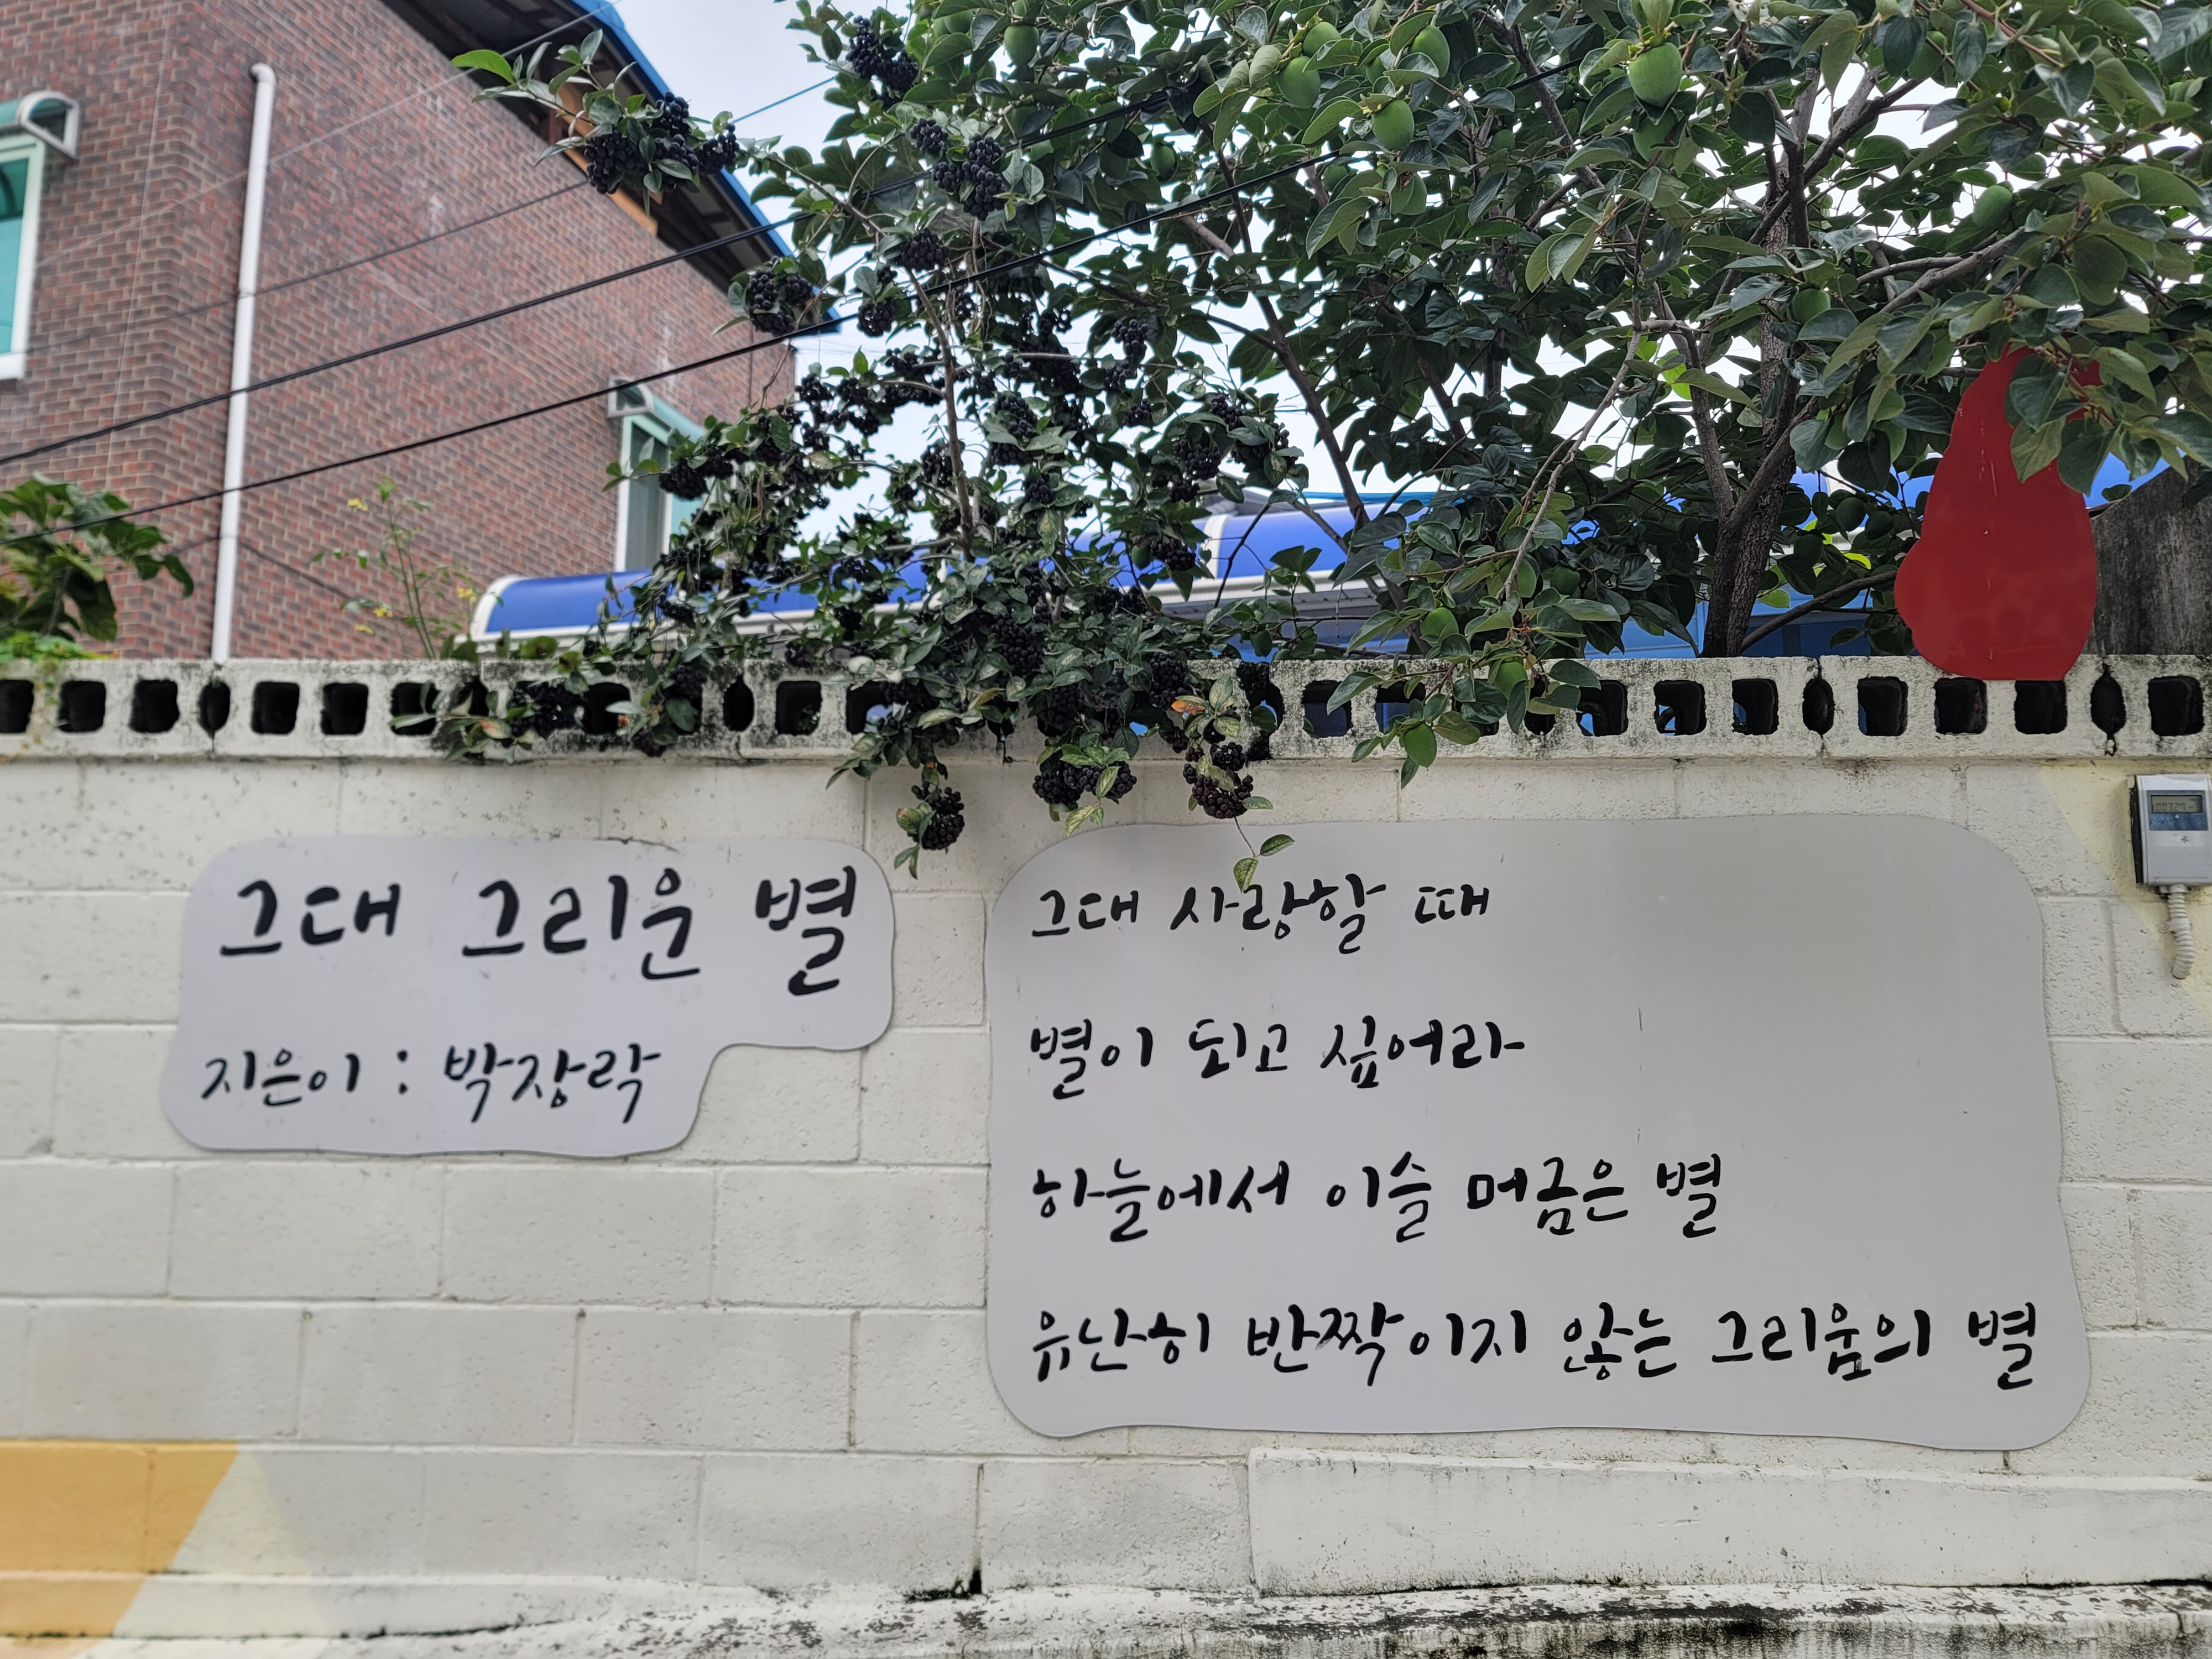 그대 그리운 별
지은이 : 박장락
그대 사랑할 때
별이 되고 싶어라
하늘에서 이슬 머금은 별
유난히 반짝이지 않는 그리움의 별